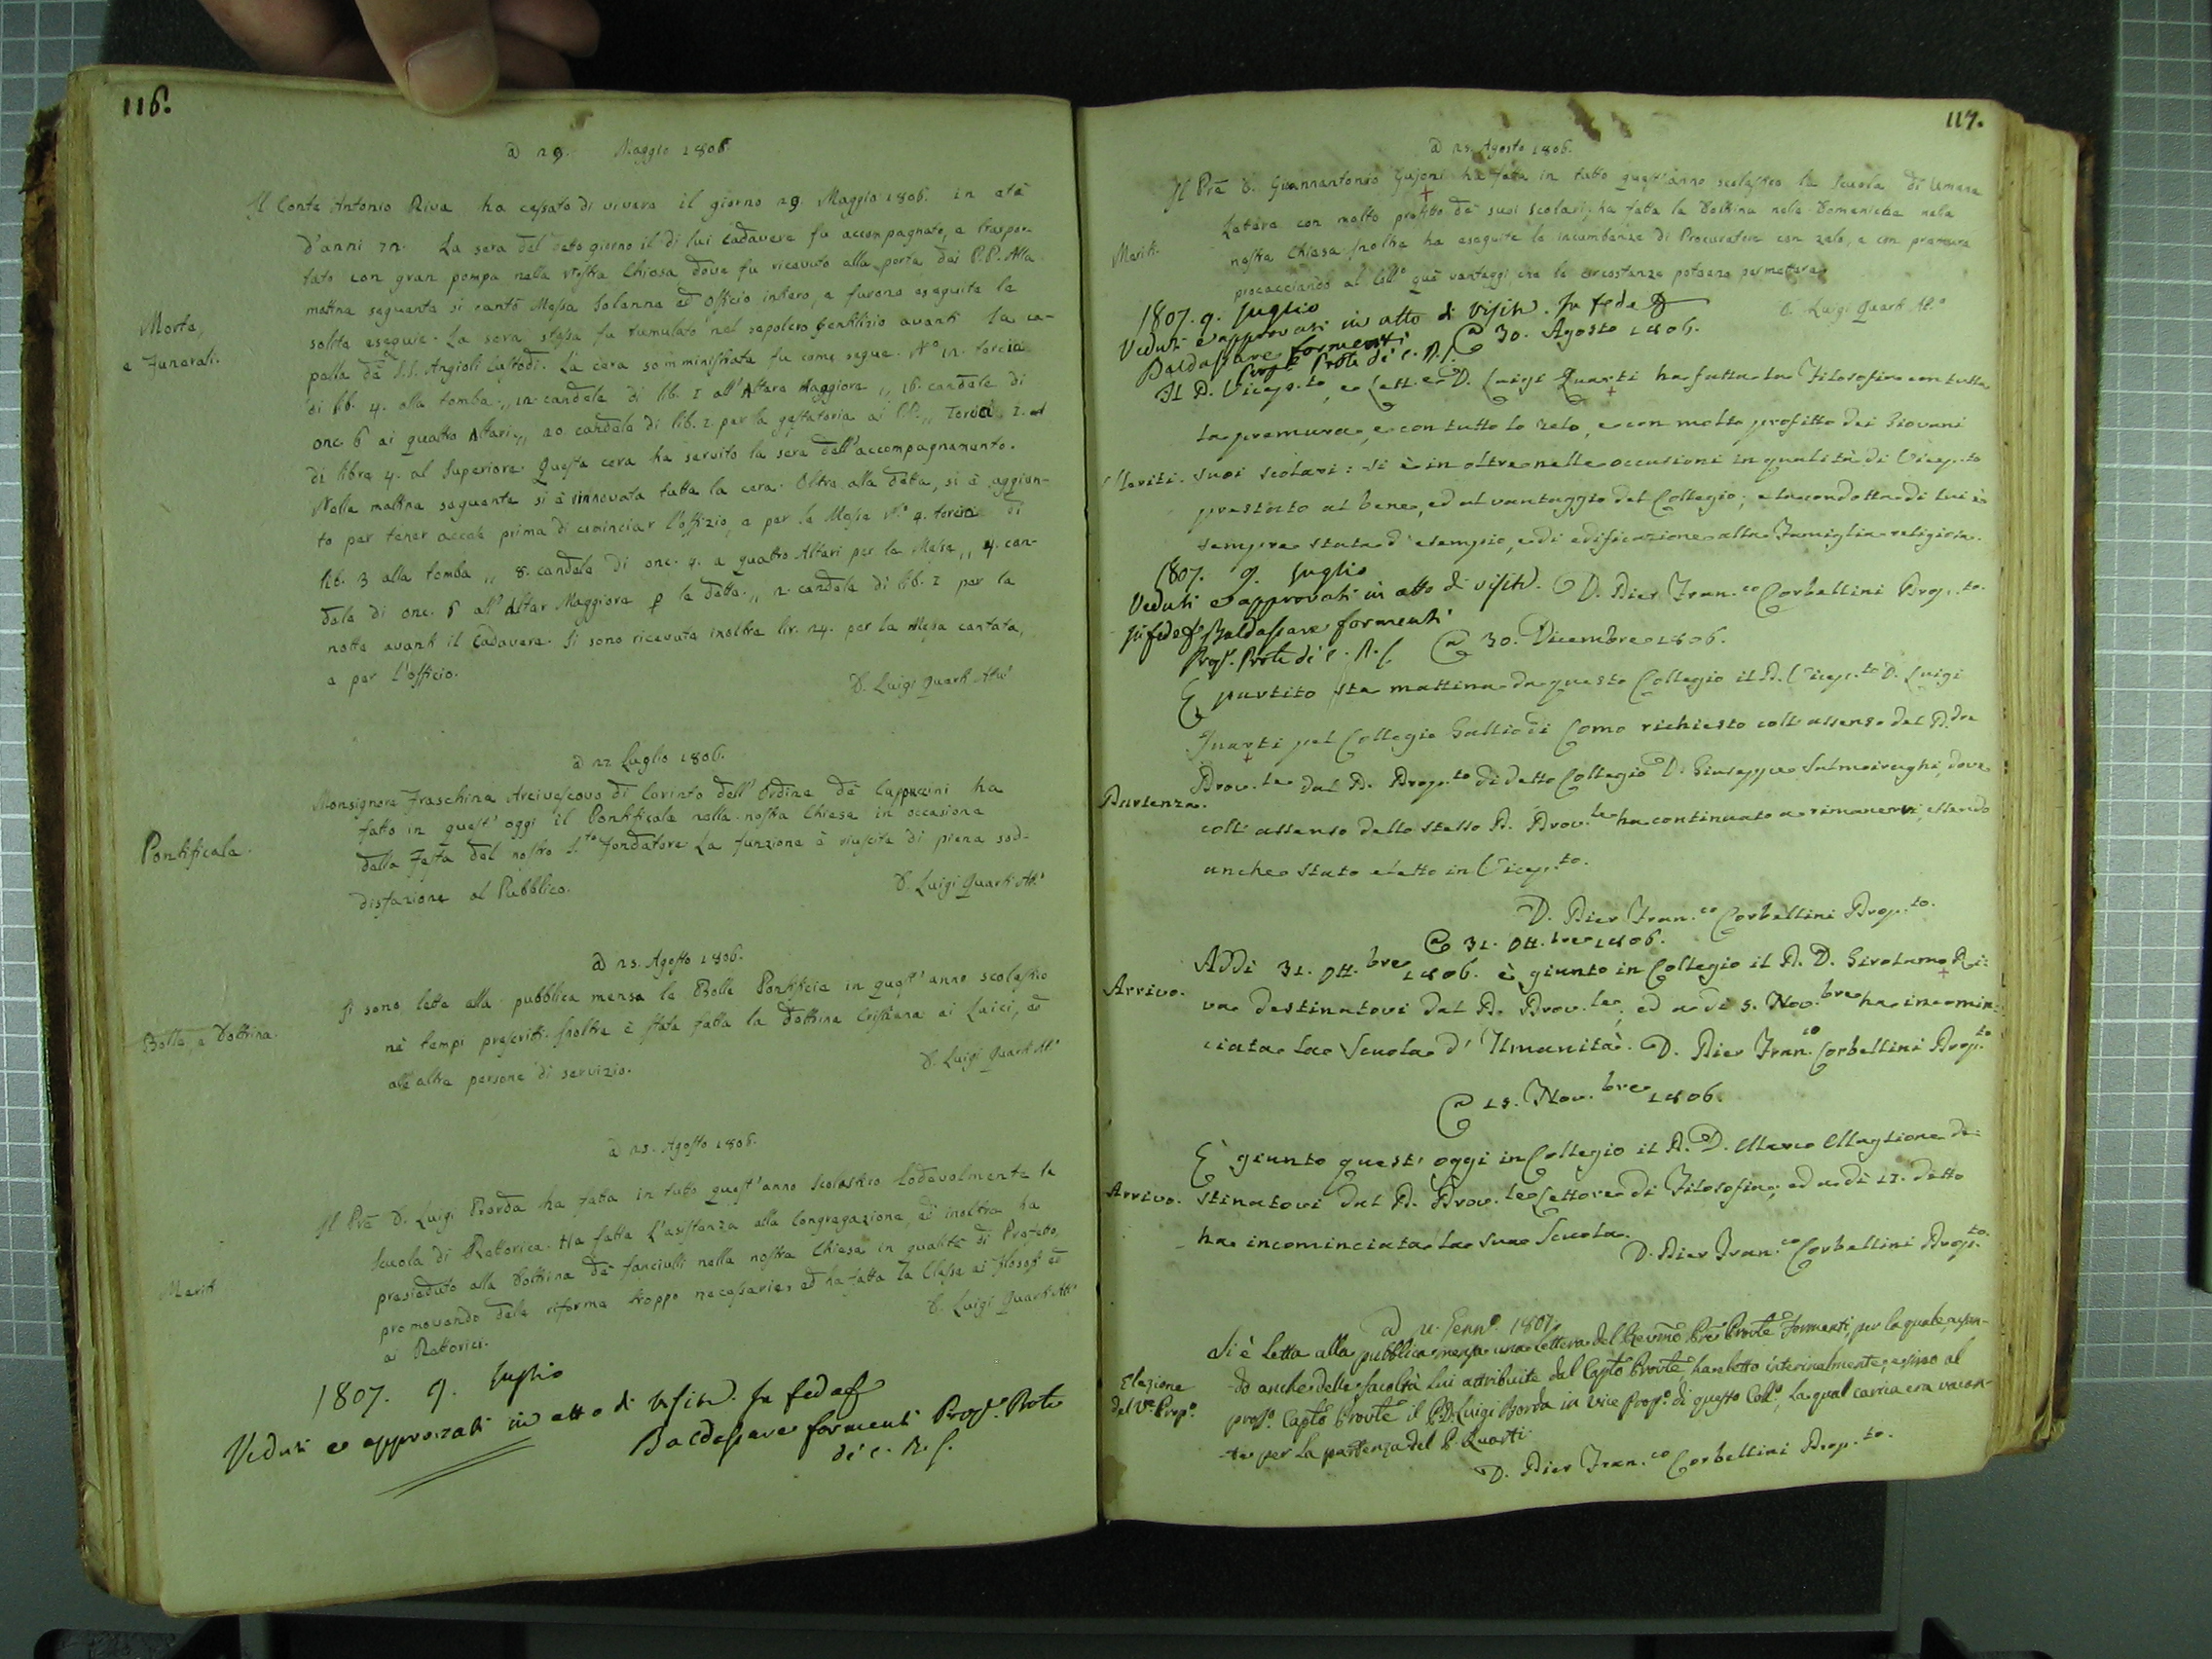 116.
a 29. Maggio 1806.
Il Conte Antonio Riva ha cessato di vivere il giorno 29. Maggio 1806. in età
d'anni 72. La sera del detto giorno il di lui Cadavere fu accompagnato, e traspor-
tato con gran pompa nella nostra Chiesa dove fu ricevuto alla porta dai P.P. Alla
mattina seguente si cantò Messa Solenne ed Officio intero, e furono eseguite le
solite esequie. La sera stessa fu tumulato nel sepolcro Gentilizio avanti la ca-
Morte,
e Funerali.
pella de' S.S. Angioli Custodi. La cera somministrata fu come segue. N.o 12. torcie
di lib. 4. alla tomba. ,, 12. candele di lib. 1 all'Altare Maggiore ,, 16. candele di
onc. 6 ai quattro Altari ,, 20 candele di lib. 1. per la gestatoria ai PP. ,, Torcia 1.
di libre 4. al Superiore. Questa cera ha servito la sera dell'accompagnamento.
Nella mattina seguente si è rinnovata tutta la cera. Oltre alla detta, si è aggiun-
to per tener accese prima di cominciar l'offizio, e per la Messa N.o 4. torcie di
lib. 3 alla tomba ,, 8. candele di onc. 4. a quattro Altari per le Messe ,, 4. can-
dele di onc. 6 all'Altar Maggiore p le dette. ,, 2. candele di lib. 1 per la
notte avanti il Cadavere. Si sono ricevute inoltre lir. 24. per la Messa cantata,
e per l'officio.
D. Luigi Quarti Att.o
a 22 Luglio 1806.
Monsignore Fraschina Arcivescovo di Corinto dell'Ordine de' Cappuccini ha
fatto in quest'oggi il Pontificale nella nostra Chiesa in occasione
Pontificale.
della Festa del nostro S.to Fondatore. La funzione è riuscita di piena sod-
disfazione al Pubblico.
D. Luigi Quarti Att.o
a 25. Agosto 1806.
Si sono lette alla pubblica mensa le Bolle Pontificie in quest'anno scolastico
Bolle, e Dottrina.
nè tempi prescritti. Inoltre è stata fatta la Dottrina Cristiana ai Laici, ed
alle altre persone di servizio.
D. Luigi Quarti Att.o
a 25. Agosto 1806.
Il Prē D. Luigi Borda ha fatta in tutto quest'anno Scolastico lodevolmente la
Scuola di Rettorica. Ha fatta l'assistenza alla Congregazione, ed inoltre ha
presieduto alla Dottrina de' fanciulli nella nostra Chiesa in qualità di Prefetto,
Meriti
promovendo delle riforme troppo necessarie, ed ha fatta la Classe ai filosofi ed
ai Rettorici.
D. Luigi Quarti Att.o
1807. 9. Luglio
Veduti e approvati in atto di visita. In fede
Baldassare Formenti Prep.o Prole
di C. R. S.
117.
a 25. Agosto 1806.
Il Prē D. Gioannantonio Gujoni ha fatta in tutto quest'anno scolastico la Scuola di Umane
Lettere con molto profitto de' suoi scolari; ha fatta la Dottrina nelle Domeniche nella
Meriti.
nostra Chiesa. Inoltre ha eseguite le incumbenze di Procuratore con zelo, e con premura
procacciando al Coll.o que' vantaggi, che le circostanze poteano permettere.
D. Luigi Quarti Att.o
1807. 9. Luglio
Veduti e approvati in atto di visita. In fede
Baldassare Formenti
Prep.o Prole di C. R. S.
a 30. Agosto 1806.
Il P. Vicep.to, e Lett.e D. Luigi Quarti ha fatta la Filosofia con tutta
la premura, e con tutto lo zelo, e con molto profitto dei Giovani
Meriti.
suoi scolari: si è in oltre nelle occasioni in qualità di Vicep.to
prestato al bene, ed al vantaggio del Collegio; e la condotta di lui è
sempre stata d'esempio, e di edificazione alla Famiglia religiosa.
D. Pier Fran.co Corbellini Prep.to
1807. 9. Luglio
Veduti e approvati in atto di visita.
In fede Baldassare Formenti
Prep.o Prole di C. R. S.
a 30. Dicembre 1806.
È partito sta mattina da questo Collegio il P. Vicep.to D. Luigi
Quarti pel Collegio Gallio di Como richiesto coll'assenso del P.
Prov.le dal P. Prep.to di detto Collegio D. Giuseppe Salmoiraghi, dove
Partenza.
coll'assenso dello stesso P. Prov.le ha continuato a rimanervi essendo
anche stato eletto in Vicep.to.
D. Pier Fran.co Corbellini Prep.to.
a 31. Ott.bre 1806.
Addi 31. Ott.bre 1806. è giunto in Collegio il P. D. Girolamo Ri-
Arrivo.
va destinatovi dal P. Prov.le, ed a dì 5. Nov.bre ha incomin-
ciata la Scuola d'Umanità. D. Pier Fran.co Corbellini Prep.to
a 15. Nov.bre 1806.
È giunto quest'oggi in Collegio il P. D. Marco Maglione de-
Arrivo.
stinatovi dal P. Prov.le Lettore di Filosofia; ed a dì 17. detto
ha incominciata la sua Scuola.
D. Pier Fran.co Corbellini Prep.to.
Genn.o 1807.
Si è letta alla pubblica mensa una lettera del Revmo Pre Prōvle Formenti, per la quale, usan-
Elezione
del V.e Prep.o
do anche delle facoltà lui attribuite dal Capto Provle, ha eletto interinalmente, e sino al
pross.o Capto Provle il P. D. Luigi Borda in Vice Prep.o di questo Coll.o, la qual carica era vacan-
te per la partenza del P. Quarti.
D. Pier Fran.co Corbellini Prep.to.